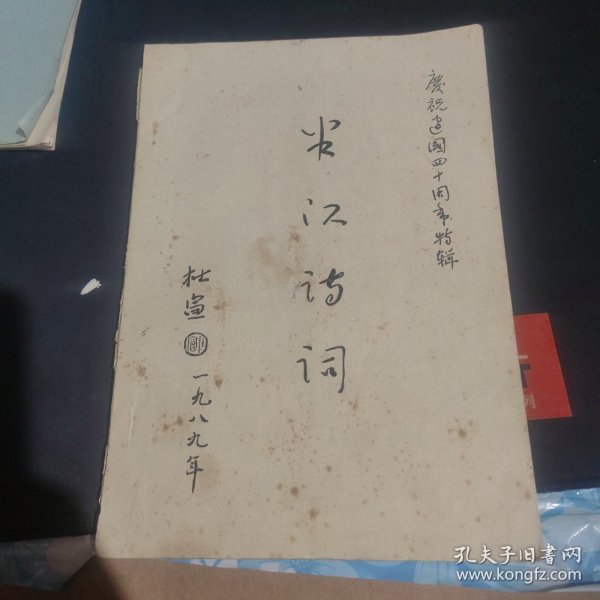 慶祝建國四十周年特辑
江诗词
杜宣
一九八九年
列
孔夫子旧书网
www.kongfz.com